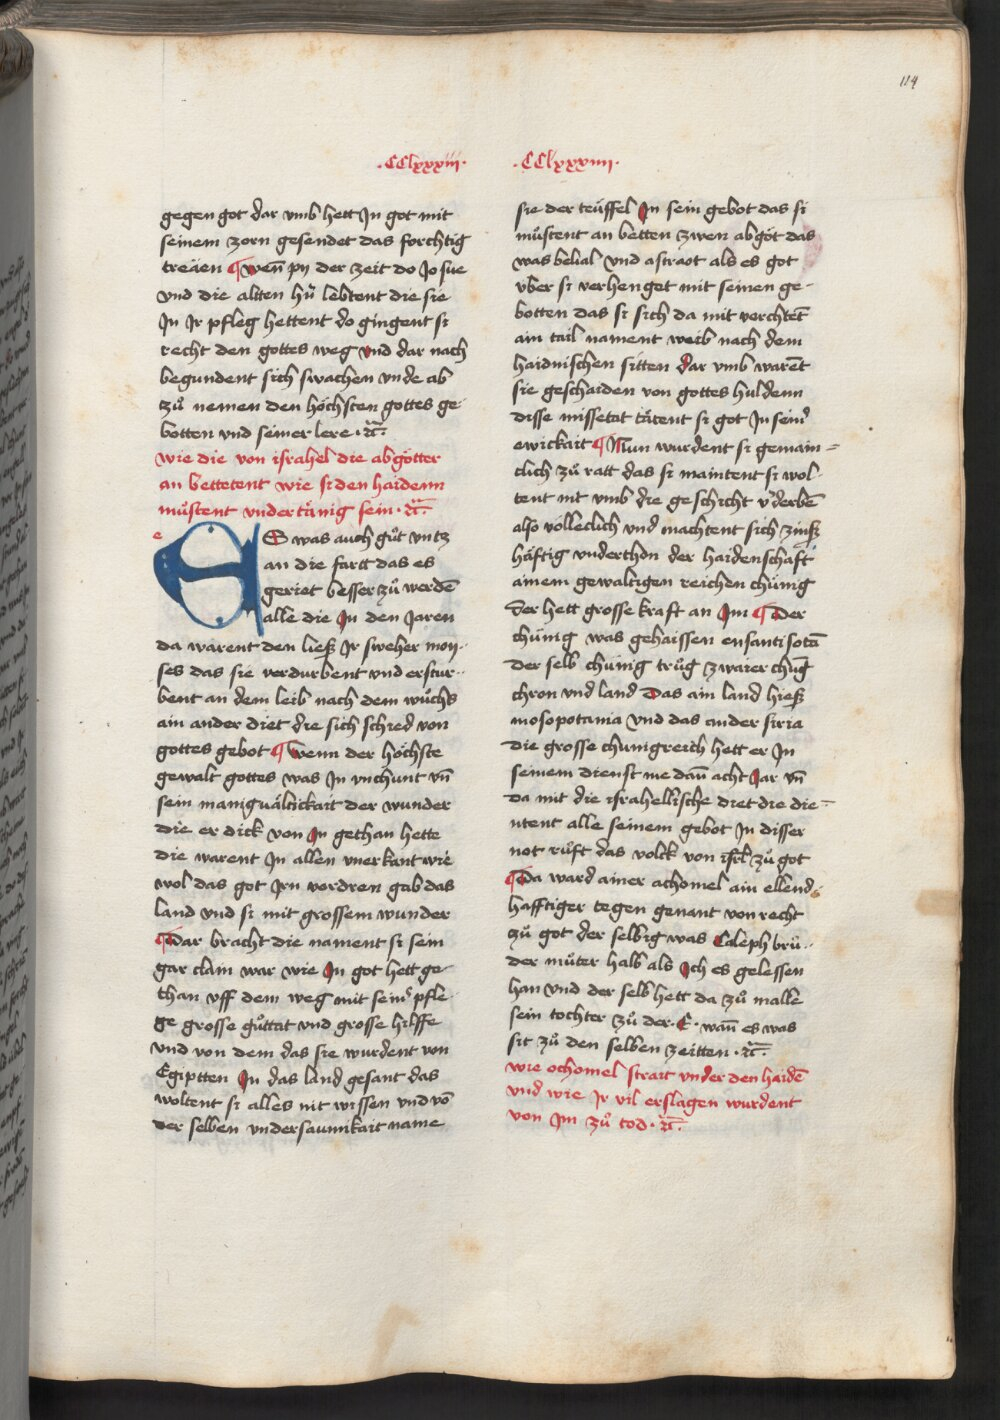 114
·CClxxxiii·
gegen got dar vmb hett Jn got mit
seinem zorn gesendet das forchtig
treäen ¶ wen̄ pÿ der zeit do Josue
vnd die altten hü lebtent die sie
Jn Jr pfleg hettent do gingent si
recht den gottes weg vnd dar nach
begundent sich swachen vnde ab
zů nemen den höchsten gottes ge
botten vnd seiner lere · ꝛc̄ ·
wie die von israhel die abgötter
an bettetent wie si den haidenn
můstent vndertänig sein · ꝛc̄ ·
e
ES was auch gůt vntz
an die fartt das es
geriet besser zů werdē
alle die Jn den Jaren
da warent den ließ Jr sweher moy-
ses das sie verdurbent vnd erstur-
bent an dem leib nach dem wůchs
ain ander diet die sich schied von
gottes gebot ¶ Wenn der höchste
gewalt gottes was Jn vnchunt vn̄
sein maniguältickait der wunder
die er dick von Jn gethan hette
die warent Jn allen vnerkant wie
wol das got Jrn vordren gab das
land vnd si mit grossem wunder
¶ Dar bracht die nament si sein
gar clain war wie Jn got hett ge-
than vff dem weg mit seinr pfle-
ge grosse gůttat vnd grosse hilffe
vnd von dem das sie wurdent von
Egiptten Jn das land gesant das
woltent si alles nit wissen vnd vō
der selben vndersaumkait name
·CClxxxiiii·
sie der teüffel Jn sein gebot das si
můstent an betten zwen abgöt das
was belial vnd astraot als es got
vber si verhenget mit seinen ge-
botten das si sich da mit verchtet̄
ain tail nament weib nach dem
haidnischen sitten dar vmb warēt
sie geschaiden von gottes huldenn
disse missetat tätent si got Jn seinr
ewickait ¶ Nun wurdent si gemain-
clich zů ratt das si maintent si wol-
tent nit vmb die geschicht vderbē
also volleclich vnd machtent sich zinß
häftig vnderthon der haidenschaft
ainem gewaltigen reichen chünig
der hett grosse kraft an Jm ¶ Der
chünig was gehaissen ensantisotā
der selb chünig trůg zwaier chüg
chron vnd land Das ain land hieß
mosopotania vnd das ander siria
die grosse chunigreich hett er Jn
seinem dienst me dan̄ acht Jar vn̄
da mit die israhellische diet die die-
ntent alle seinem gebot Jn disser
not růft das volck von isrl̄ zů got
¶ Da ward ainer achomel ain ellend-
hafftiger tegen genant von recht
zů got der selbig was Caleph brů-
der můter halb als Jch es gelessen
han vnd der selb hett da zů malle
sein tochter zů der · E · wan̄ es was
sit zů den selben zeitten · ꝛc̄ ·
wie ochomel strait vnder den haidē
vnd wie Jr vil erslagen wurdent
von Jm zů tod · ꝛc̄ ·